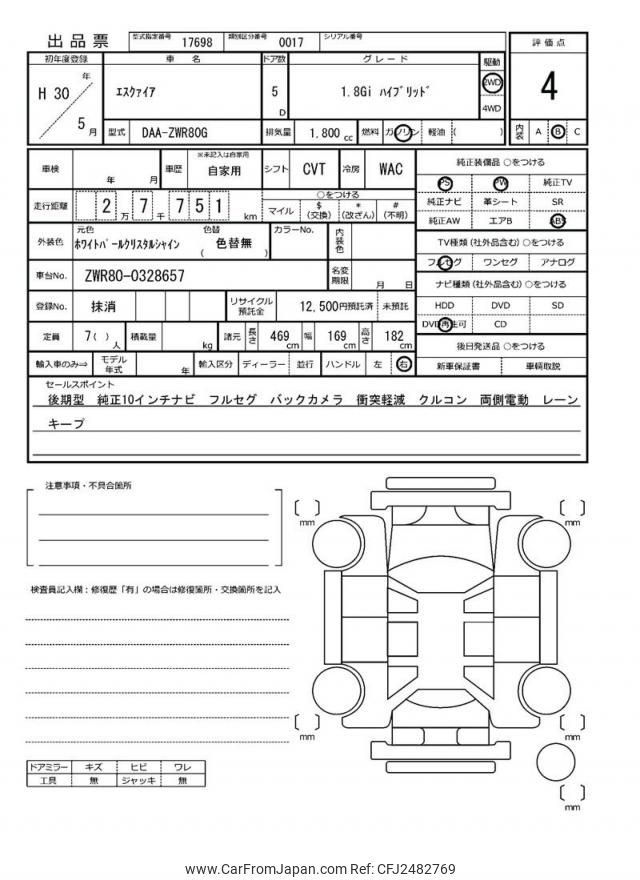 出品票 型式指定番号 17698 類別区分番号 0017 シリアル番号
評価点
4
内装 A B C
初年度登録 車名 ドア数 グレード 駆動
H 30 年 5 月
ｴｽｸｧｲｱ
5 D
1.8Gi ﾊｲﾌﾞﾘｯﾄﾞ
2WD
4WD
型式 DAA-ZWR80G 排気量 1,800 cc 燃料 ガソリン 軽油 ( )
車検 年 月 車歴 ※未記入は自家用 自家用 シフト CVT 冷房 WAC
走行距離 2 万 7 千 7 5 1 km
○をつける
マイル $ (交換) * (改ざん) # (不明)
外装色 元色 ﾎﾜｲﾄﾊﾟｰﾙｸﾘｽﾀﾙｼｬｲﾝ 色替 ( 色替無 ) カラーNo. 内装色
車台No. ZWR80-0328657 名変期限 月 日
登録No. 抹消 リサイクル預託金 12,500円預託済 未預託
定員 7( ) 人 積載量 kg 諸元 長さ 469 cm 幅 169 cm 高さ 182 cm
輸入車のみ⇒ モデル年式 年 輸入区分 ディーラー 並行 ハンドル 左 右
純正装備品 ○をつける
PS PW 純正TV
純正ナビ 革シート SR
純正AW エアB ABS
TV種類 (社外品含む) ○をつける
フルセグ ワンセグ アナログ
ナビ種類 (社外品含む) ○をつける
HDD DVD SD
DVD再生可 CD
後日発送品 ○をつける
新車保証書 車輌取説
セールスポイント
後期型 純正10インチナビ フルセグ バックカメラ 衝突軽減 クルコン 両側電動 レーン
キープ
注意事項・不具合箇所
検査員記入欄：修復歴「有」の場合は修復箇所・交換箇所を記入
ドアミラー キズ ヒビ ワレ
工具 無 ジャッキ 無
mm
mm
mm
mm
mm
www.CarFromJapan.com Ref: CFJ2482769